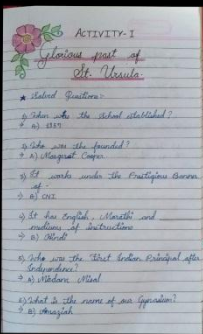 ACTIVITY-I
Glorious past of
St. Ursula.
★ Solved Questions:-
1) When was the school established?
→ A)
2) Who was the founder?
→ A) Margaret Cooper
3) It works under the Prestigious Banner
of -
→ B) CNI
4) It has English, Marathi and
mediums of instructions
→ B) Hindi
5) Who was the First Indian Principal after
Independence?
→ A) Madam
6) What is the name of our Gymnasium?
→ B)